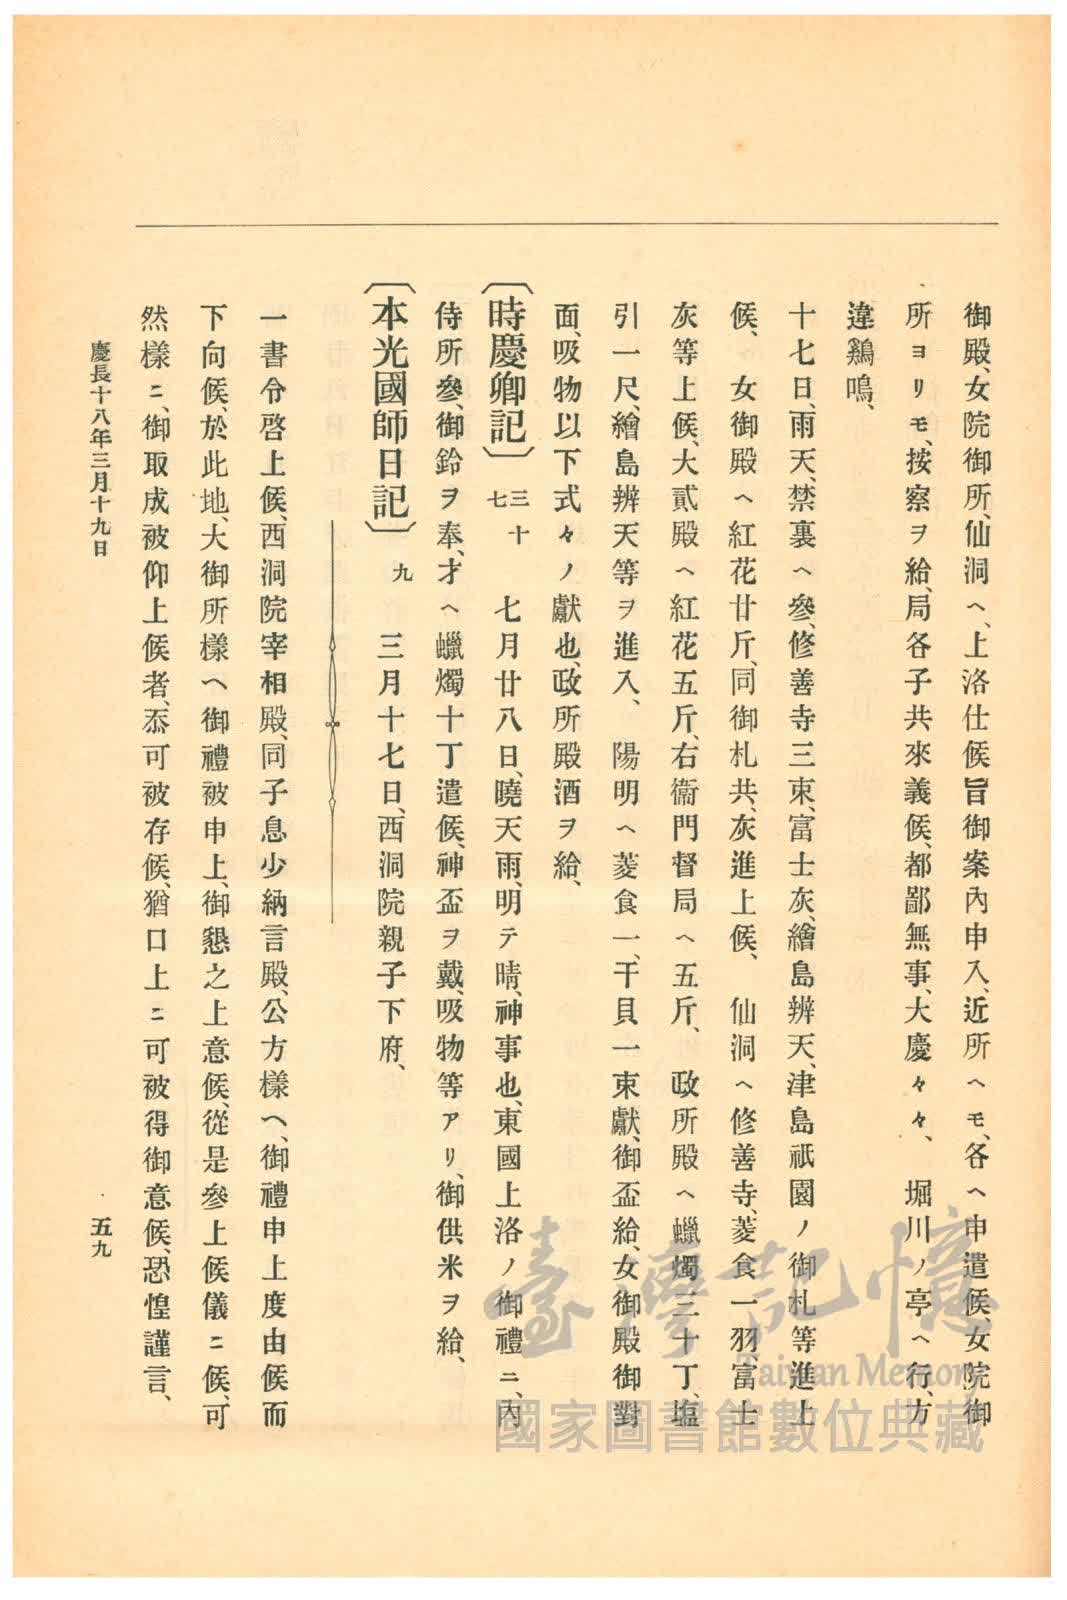 御殿、女院御所、仙洞ヘ、上洛仕候旨御案內申入、近所ヘモ、各ヘ申遣候、女院御
所ヨリモ、按察ヲ給、局各子共來義候、都鄙無事、大慶々々、　堀川ノ亭ヘ行、方
違鷄鳴、
十七日、雨天、禁裏ヘ參、修善寺三束、富士灰、繪島辨天、津島祇園ノ御札等進上
候、　女御殿ヘ紅花廿斤、同御札共、灰進上候、　仙洞ヘ修善寺、菱食一羽富士
灰等上候、大貳殿ヘ紅花五斤、右衞門督局ヘ五斤、　政所殿ヘ蠟燭三十丁、塩
引一尺、繪島辨天等ヲ進入、　陽明ヘ菱食一、干貝一束獻、御盃給、女御殿御對
面、吸物以下式々ノ獻也、政所殿酒ヲ給、
〔時慶卿記〕 三十七　七月廿八日、曉天雨、明テ晴、神事也、東國上洛ノ御禮ニ、內
侍所參、御鈴ヲ奉、才ヘ蠟燭十丁遣候、神盃ヲ戴、吸物等アリ、御供米ヲ給、
〔本光國師日記〕 九　三月十七日、西洞院親子下府、
一書令啓上候、西洞院宰相殿、同子息少納言殿、公方樣ヘ、御禮申上度由候而
下向候、於此地、大御所樣ヘ御禮被申上、御懇之上意候、從是參上候儀ニ候、可
然樣ニ、御取成被仰上候者、忝可被存候、猶口上ニ可被得御意候、恐惶謹言、
慶長十八年三月十九日
五九
臺灣記憶
Taiwan Memory
國家圖書館數位典藏